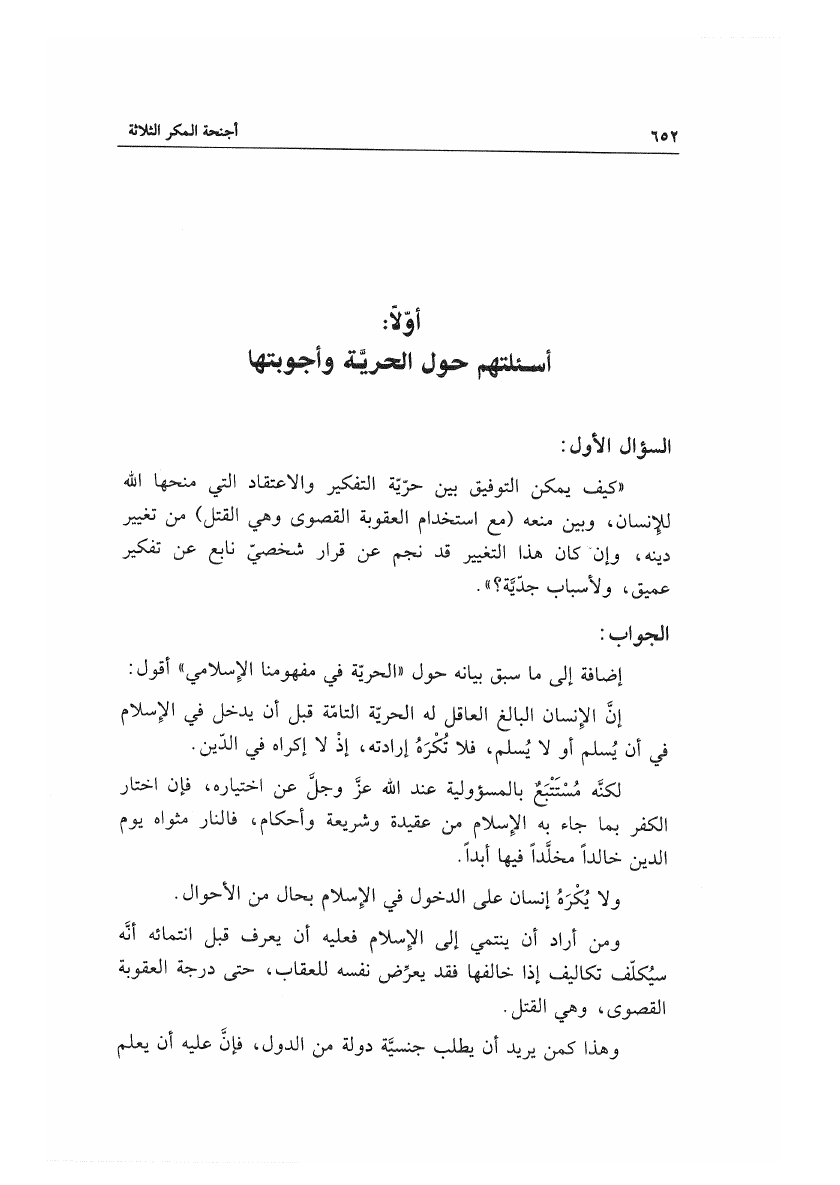 ٦٥٢ أجنحة المكر الثلاثة
أوّلاً:
أسئلتهم حول الحريَّة وأجوبتها
السؤال الأول:
«كيف يمكن التوفيق بين حرّيّة التفكير والاعتقاد التي منحها الله
للإنسان، وبين منعه (مع استخدام العقوبة القصوى وهي القتل) من تغيير
دينه، وإن كان هذا التغيير قد نجم عن قرار شخصيّ نابع عن تفكير
عميق، ولأسباب جدّيَّة؟».
الجواب:
إضافة إلى ما سبق بيانه حول «الحريّة في مفهومنا الإسلامي» أقول:
إنَّ الإنسان البالغ العاقل له الحريّة التامّة قبل أن يدخل في الإسلام
في أن يُسلم أو لا يُسلم، فلا تُكْرَهُ إرادته، إذْ لا إكراه في الدّين.
لكنَّه مُسْتَتْبَعٌ بالمسؤولية عند الله عزَّ وجلَّ عن اختياره، فإن اختار
الكفر بما جاء به الإسلام من عقيدة وشريعة وأحكام، فالنار مثواه يوم
الدين خالداً مخلَّداً فيها أبداً.
ولا يُكْرَهُ إنسان على الدخول في الإسلام بحال من الأحوال.
ومن أراد أن ينتمي إلى الإسلام فعليه أن يعرف قبل انتمائه أنَّه
سيُكلّف تكاليف إذا خالفها فقد يعرِّض نفسه للعقاب، حتى درجة العقوبة
القصوى، وهي القتل.
وهذا كمن يريد أن يطلب جنسيَّة دولة من الدول، فإنَّ عليه أن يعلم